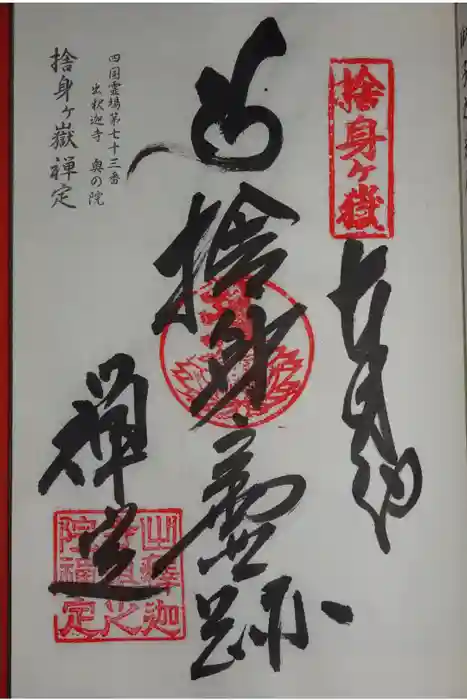 捨身ヶ嶽
奉拝
捨身霊跡
禅定
四国霊場第七十三番
出釈迦寺 奥の院
捨身ヶ嶽禅定
出釋迦
寺奥之
院禅定